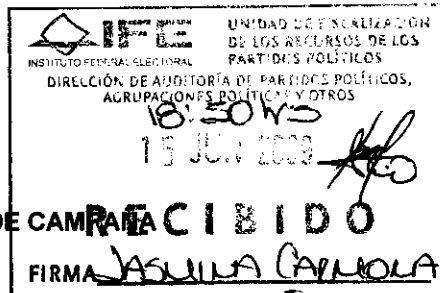 IFE
INSTITUTO FEDERAL ELECTORAL
UNIDAD DE FISCALIZACIÓN
DE LOS RECURSOS DE LOS
PARTIDOS POLÍTICOS
DIRECCIÓN DE AUDITORÍA DE PARTIDOS POLÍTICOS,
AGRUPACIONES POLÍTICAS Y OTROS
18:50
15 JUN 2009
DE CAMPAÑA
RECIBIDO
FIRMA